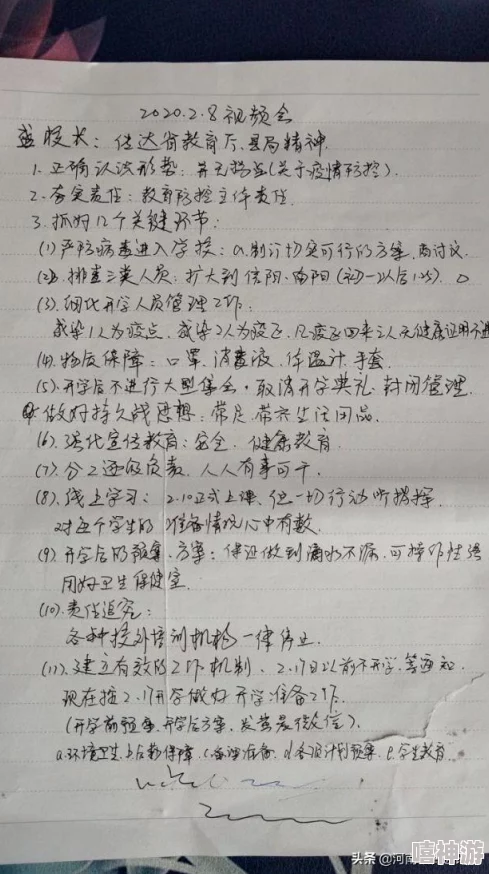 2020.2.8视频会
盛校长：传达省教育厅、县局精神
1. 正确认识形势：并无扬言(关于疫情防控).
2. 夯实责任：教育防控主体责任
3. 抓好12个关键环节：
(1)严防病毒进入学校：a.制订切实可行的方案，商讨议.
(2). 排查三类人员：扩大到信阳、南阳
(3). 细化开学人员管理工作：
感染1人为疫点，感染2人为疫区，凡疫区回来之人无健康证明不进
(4). 物质保障：口罩、消毒液、体温计、手套
(5). 开学后不进行大型集会，取消开学典礼，封闭管理.
做好持久战思想，带足带齐生活用品.
(6). 强化宣传教育：安全、健康教育
(7). 分工逐级负责，人人有事可干.
(8). 线上学习：2.10正式上课，但一切行动听指挥.
对每个学生的准备情况心中有数.
(9). 开学后的预案、方案：保证做到滴水不漏，可操作性强
用好卫生保健室.
(10). 责任追究：
各种校外培训机构一律停止.
(11). 建立有效的工作机制，2.17日以前不开学，等通知
现在按2.17开学做好开学准备工作.
(开学前预案、开学后方案，发董晨微信).
a.环境卫生 b.后勤保障 d.各项计划预案 e.学生教育
头条 @河南
嘻神游